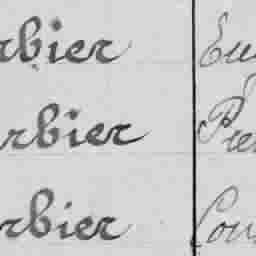 rbier Eu
rbier Pie
rbier Lou